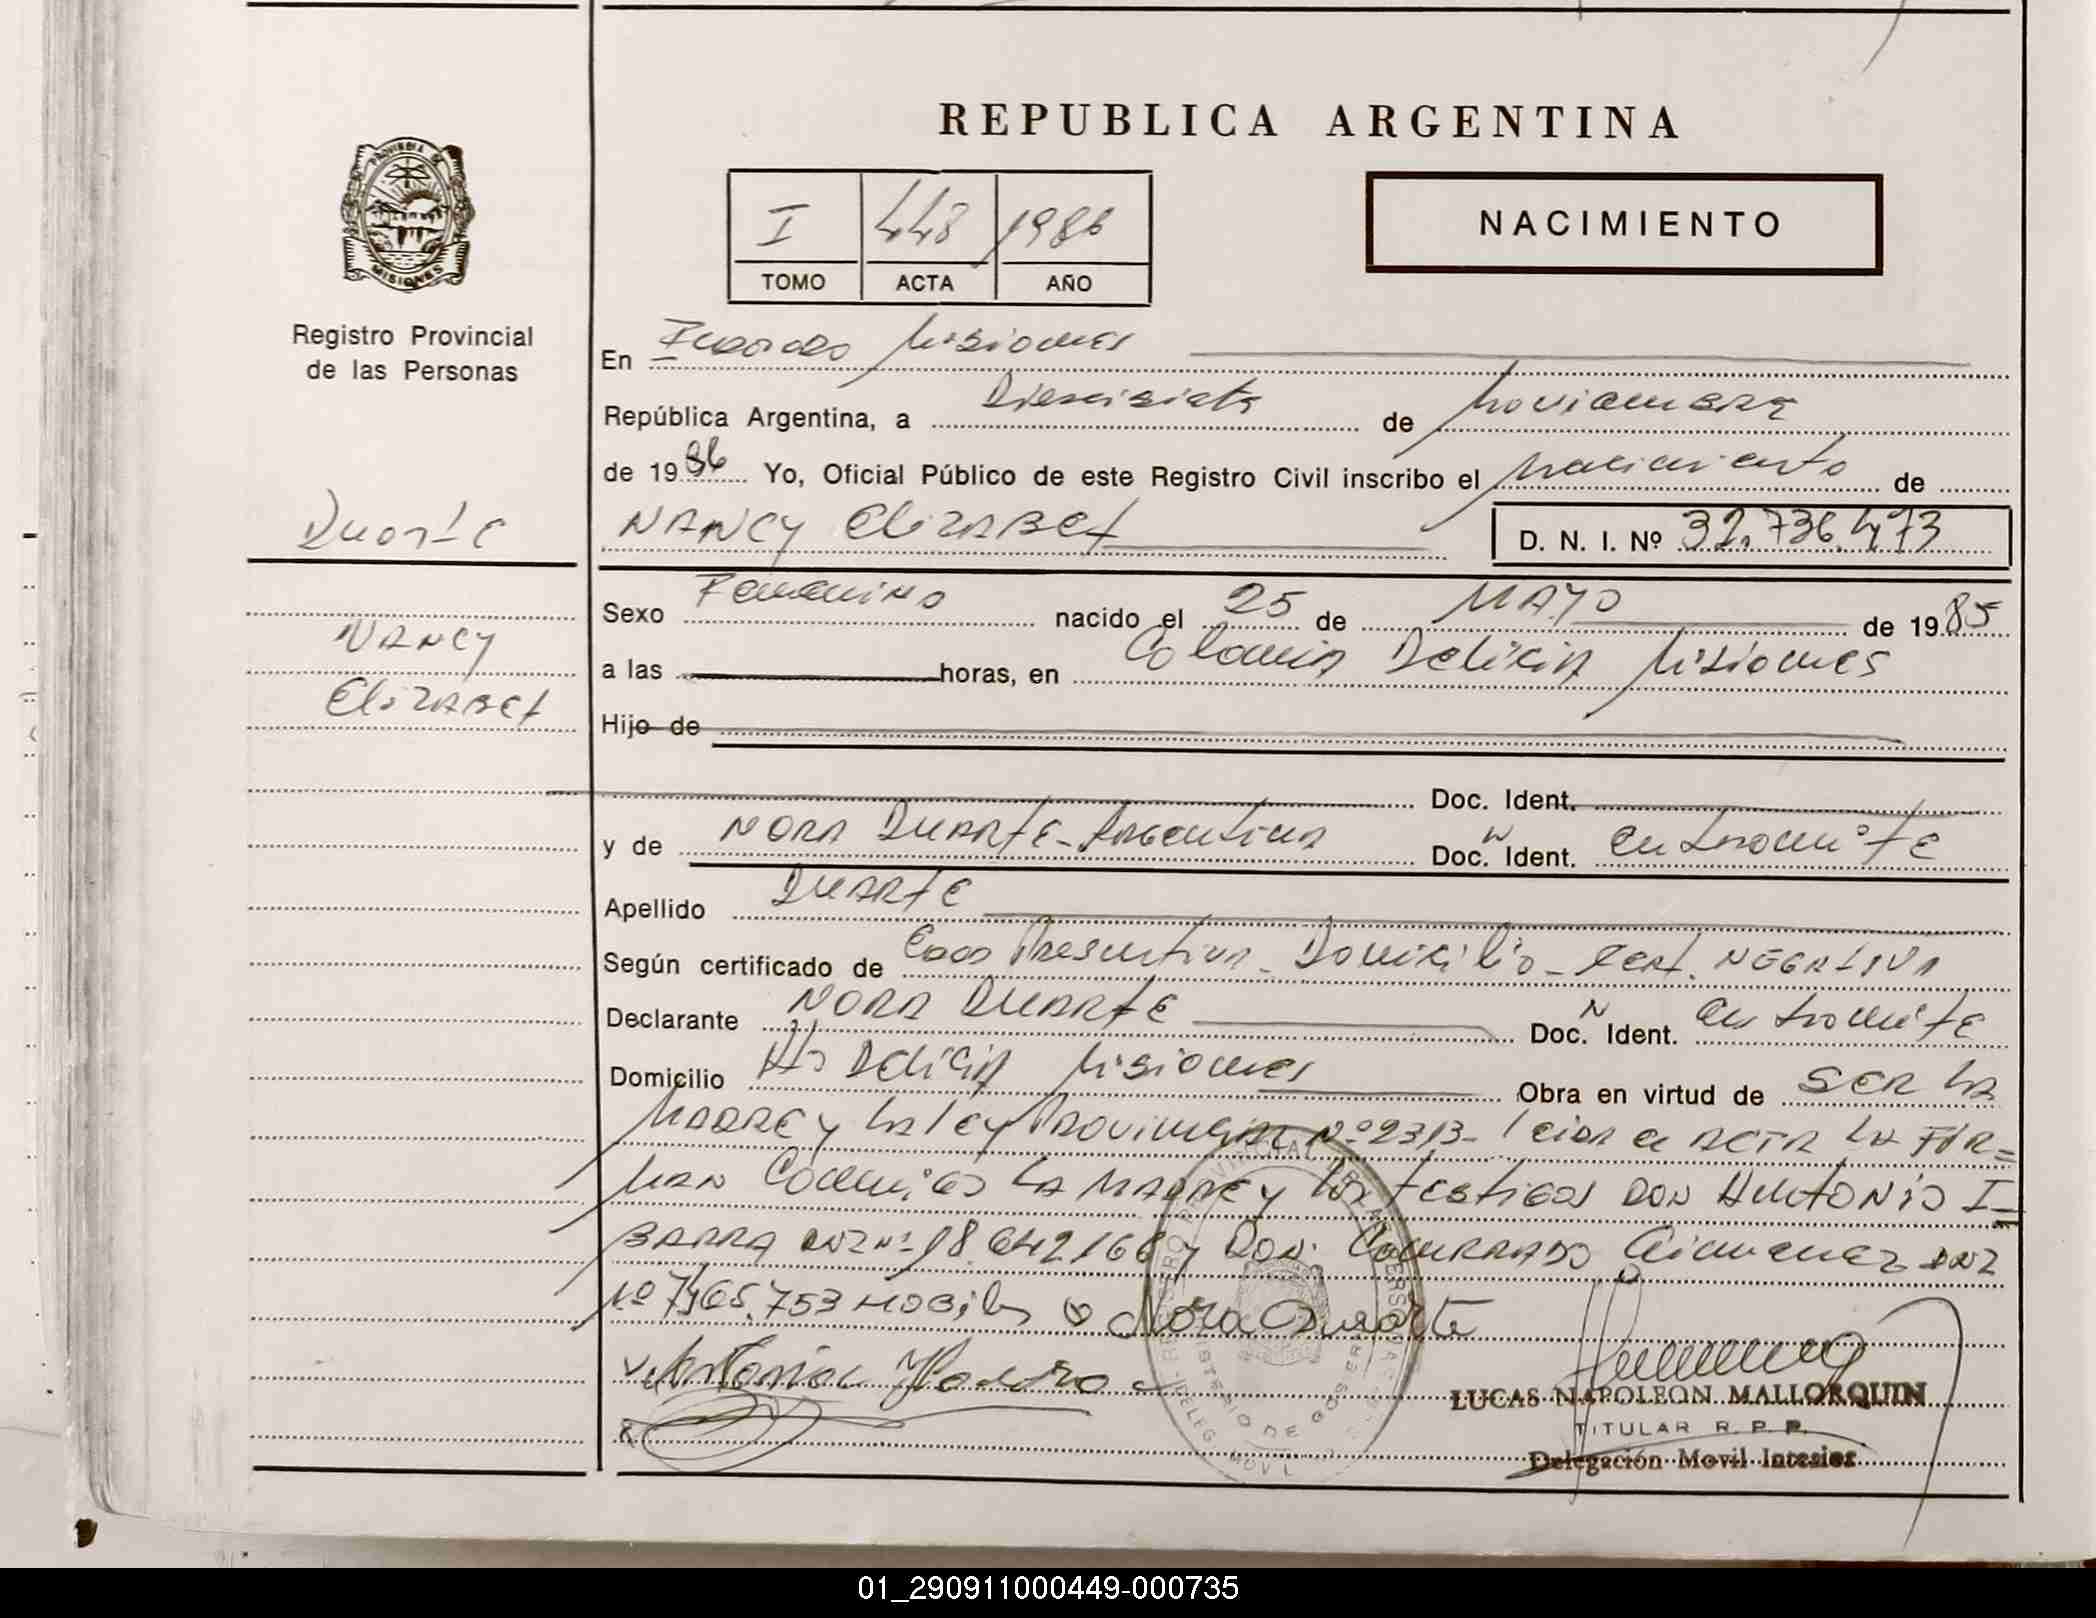 REPUBLICA ARGENTINA
PROVINCIA DE
MISIONES
Registro Provincial
de las Personas
I 448 1986
TOMO ACTA AÑO
NACIMIENTO
En Misiones
República Argentina, a Diescisiete de Noviembre
de 1986 Yo, Oficial Público de este Registro Civil inscribo el Nacimiento de
Duarte
NANCY ElizABEt
D. N. I. Nº 32.736.473
NANCY
ElizABEt
Sexo Femenino nacido el 25 de MAYO de 1985
a las horas, en Colonia Delicia Misiones
Hijo de
Doc. Ident.
y de NORA DUARTE - Argentina Doc. N Ident. en tramite
Apellido DUARTE
Según certificado de Presuntiva - Domicilio - Cert. NEGATIVA
Declarante NORA DUARTE Doc. N Ident. en tramite
Domicilio Delicia Misiones Obra en virtud de SER LA
MADRE y la ley Provincial Nº 2313 - leida el ACTA LA FIR=
man Conmigo LA MADRE y los testigos DON ANtONiO I=
BARRA DNI Nº 18.642166 y Don. Conrrado Gimenez DNI
Nº 7465.753 Nora Duarte
LUCAS NAPOLEON MALLORQUIN
TITULAR R. P. P.
Delegación Movil Interior
01_290911000449-000735